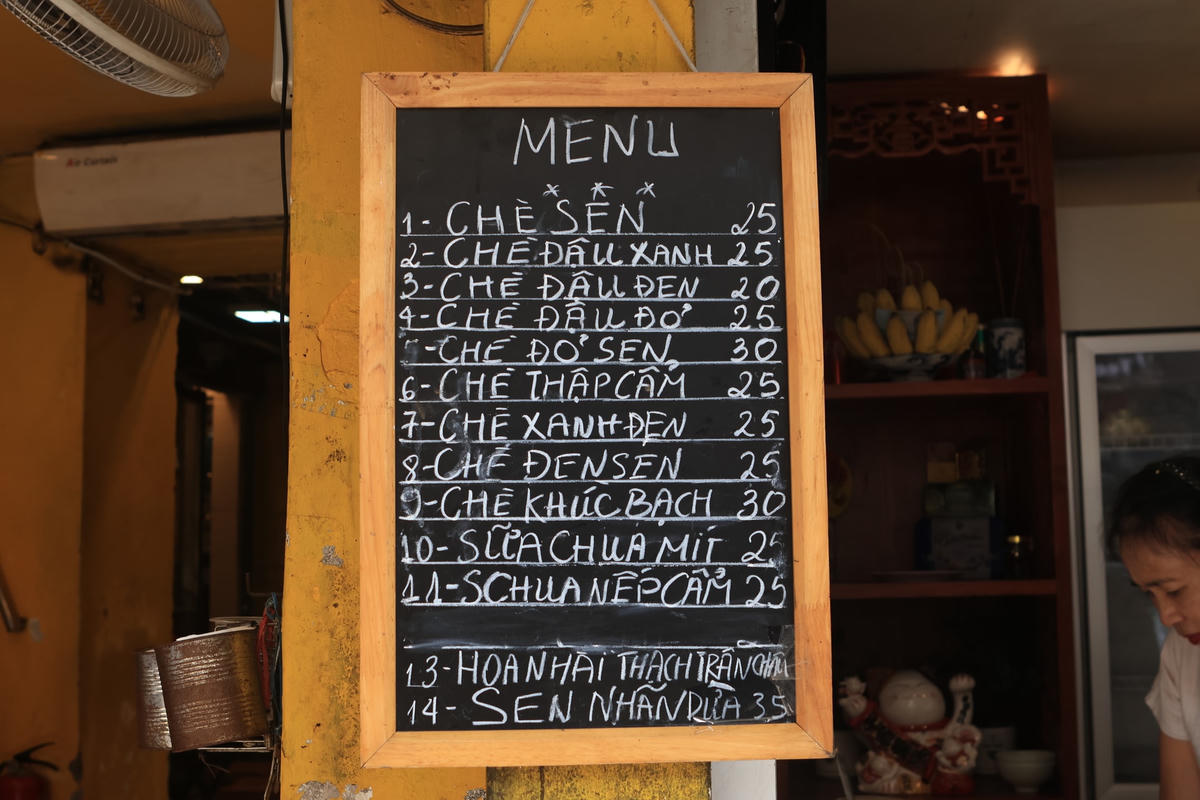 Air Curtain
MENU
* * *
1- CHÈ SEN 25
2- CHÈ ĐẬU XANH 25
3- CHÈ ĐẬU ĐEN 20
4- CHÈ ĐẬU ĐỎ 25
5- CHÈ ĐỎ SEN 30
6- CHÈ THẬP CẨM 25
7- CHÈ XANH ĐEN 25
8- CHÈ ĐEN SEN 25
9- CHÈ KHÚC BẠCH 30
10- SỮA CHUA MÍT 25
11- S CHUA NẾP CẨM 25
13- HOA NHÀI THẠCH TRÂN CHÂU
14- SEN NHÃN DỪA 35